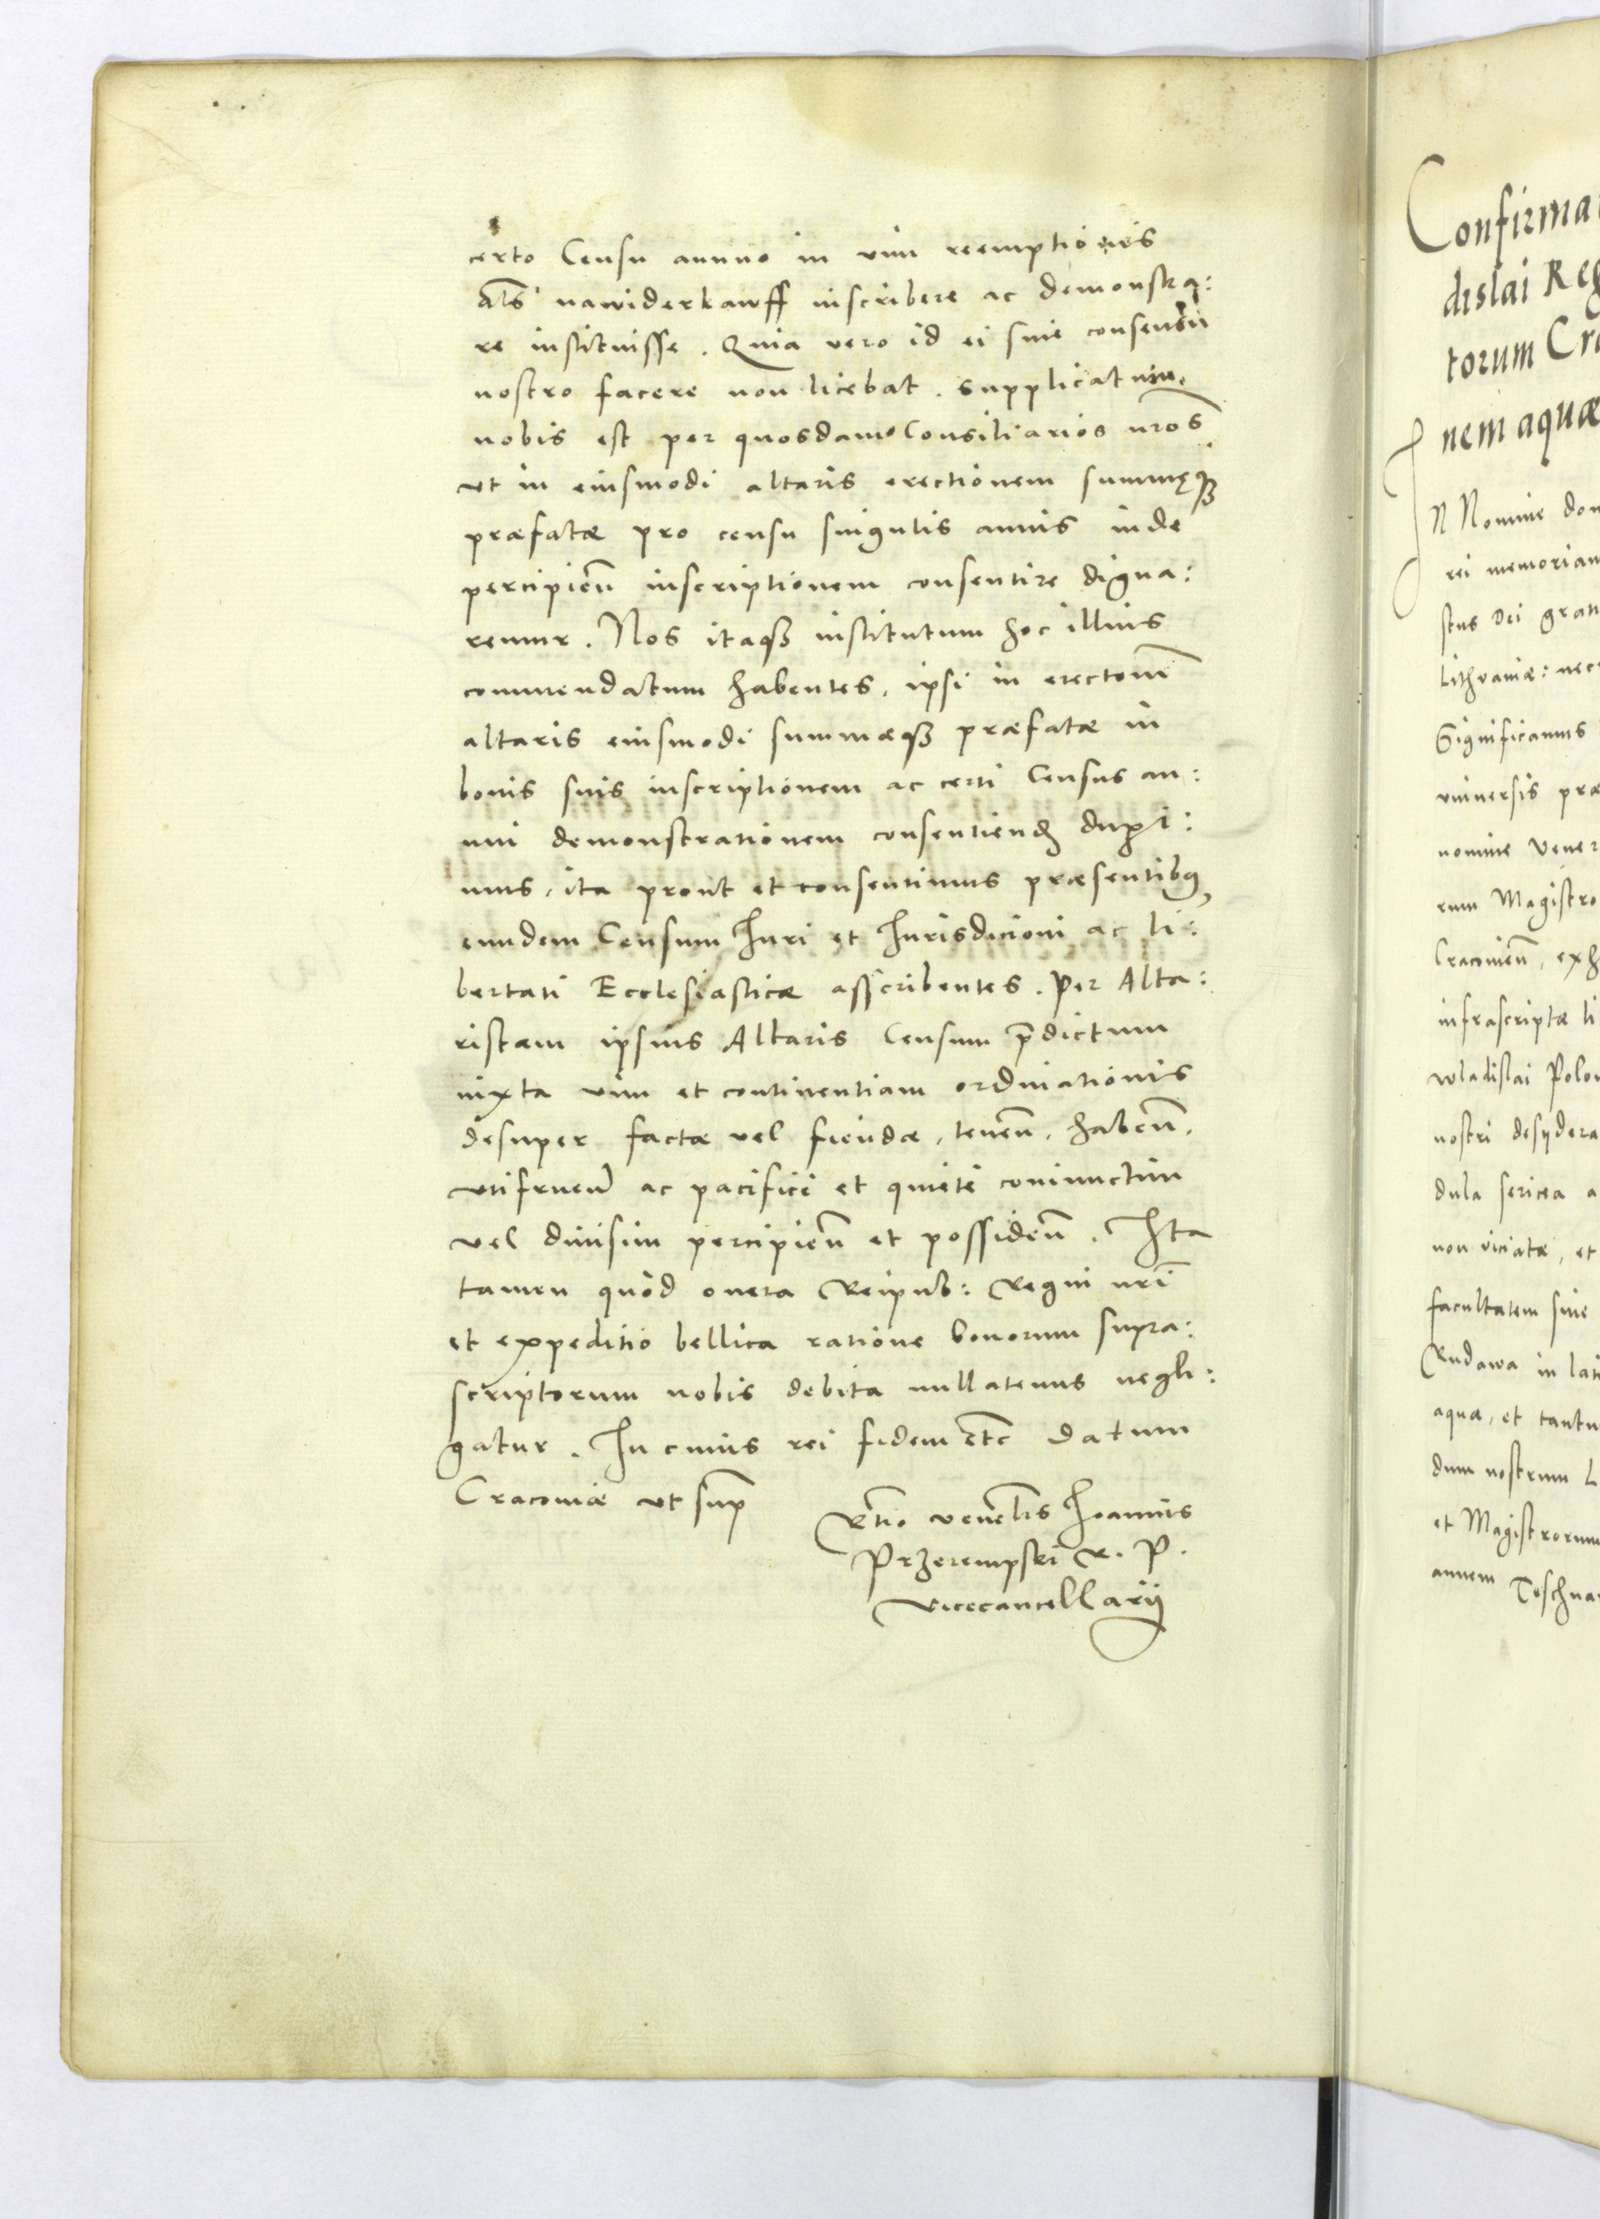 certo Censu annuo in vim reemptionis
al̃s nawiderkawff inscribere ac demonstra:
re instituisse. Quia vero id ei sine consensu
nostro facere non licebat. supplicatum
nobis est per quosdam Consiliarios nr̃os
ut in eiusmodi altaris erectionem summęqꝫ
præfatæ pro censu singulis annis inde
percipieñ inscriptionem consentire digna:
remur. Nos itaqꝫ institutum hoc illius
commendatum habentes, ipsi in erectonẽ
altaris eiusmodi summæqꝫ præfatæ in
bonis suis inscriptionem ac certi Census an:
nui demonstrationem consentienď duxi:
mus, ita prout et consentimus præsentibꝰ
eundem Censum Iuri et Iurisdicioni ac li:
bertati Ecclesiasticæ asscribentes. Per Alta:
ristam ipsius Altaris Censum p̃dictum
iuxta vim et continentiam ordinationis
desuper factæ vel fiendæ, teneñ, habeñ,
utifrueñ ac pacificè et quietè coniunctim
vel divisim percipieñ et possideñ. Ita
tamen quòd onera Reipub: Regni nr̃i
et expeditio bellica ratione bonorum supra:
scriptorum nobis debita nullatenus negli:
gatur. In cuius rei fidem etc̃ Datum
Cracoviæ ut sup̃
Rt̃io venel̃is Ioannis
Przerempski R. P.
Vicecancellarij
Confirma
dislai Reg
torum Cra
nem aquæ
In Nomine dom
rei memoriam
stus Dei grati
Lithvaniæ: nec
Significamus
universis præ
nomine Vener
rum Magistro
Cracovieñ, exh
infrascriptæ li
Wladislai Polon
nostri desydera
dula sericea a
non viciatæ, et
facultatem sive
Rudawa in lati
aquæ, et tantu
dum nostrum L
et Magistrorum
annem Teschna